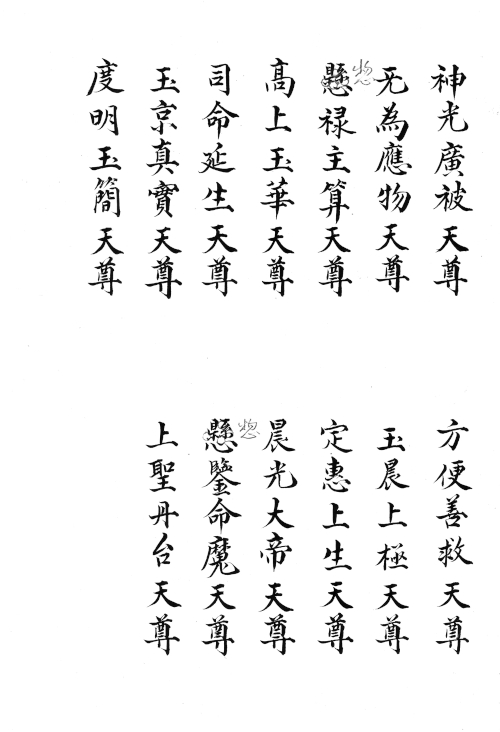 神光廣被天尊
无為應物天尊
懸禄主算天尊
高上玉華天尊
司命延生天尊
玉京真寶天尊
度明玉簡天尊
方便善救天尊
玉晨上極天尊
定惠上生天尊
晨光大帝天尊
懸鑒命魔天尊
上聖丹台天尊